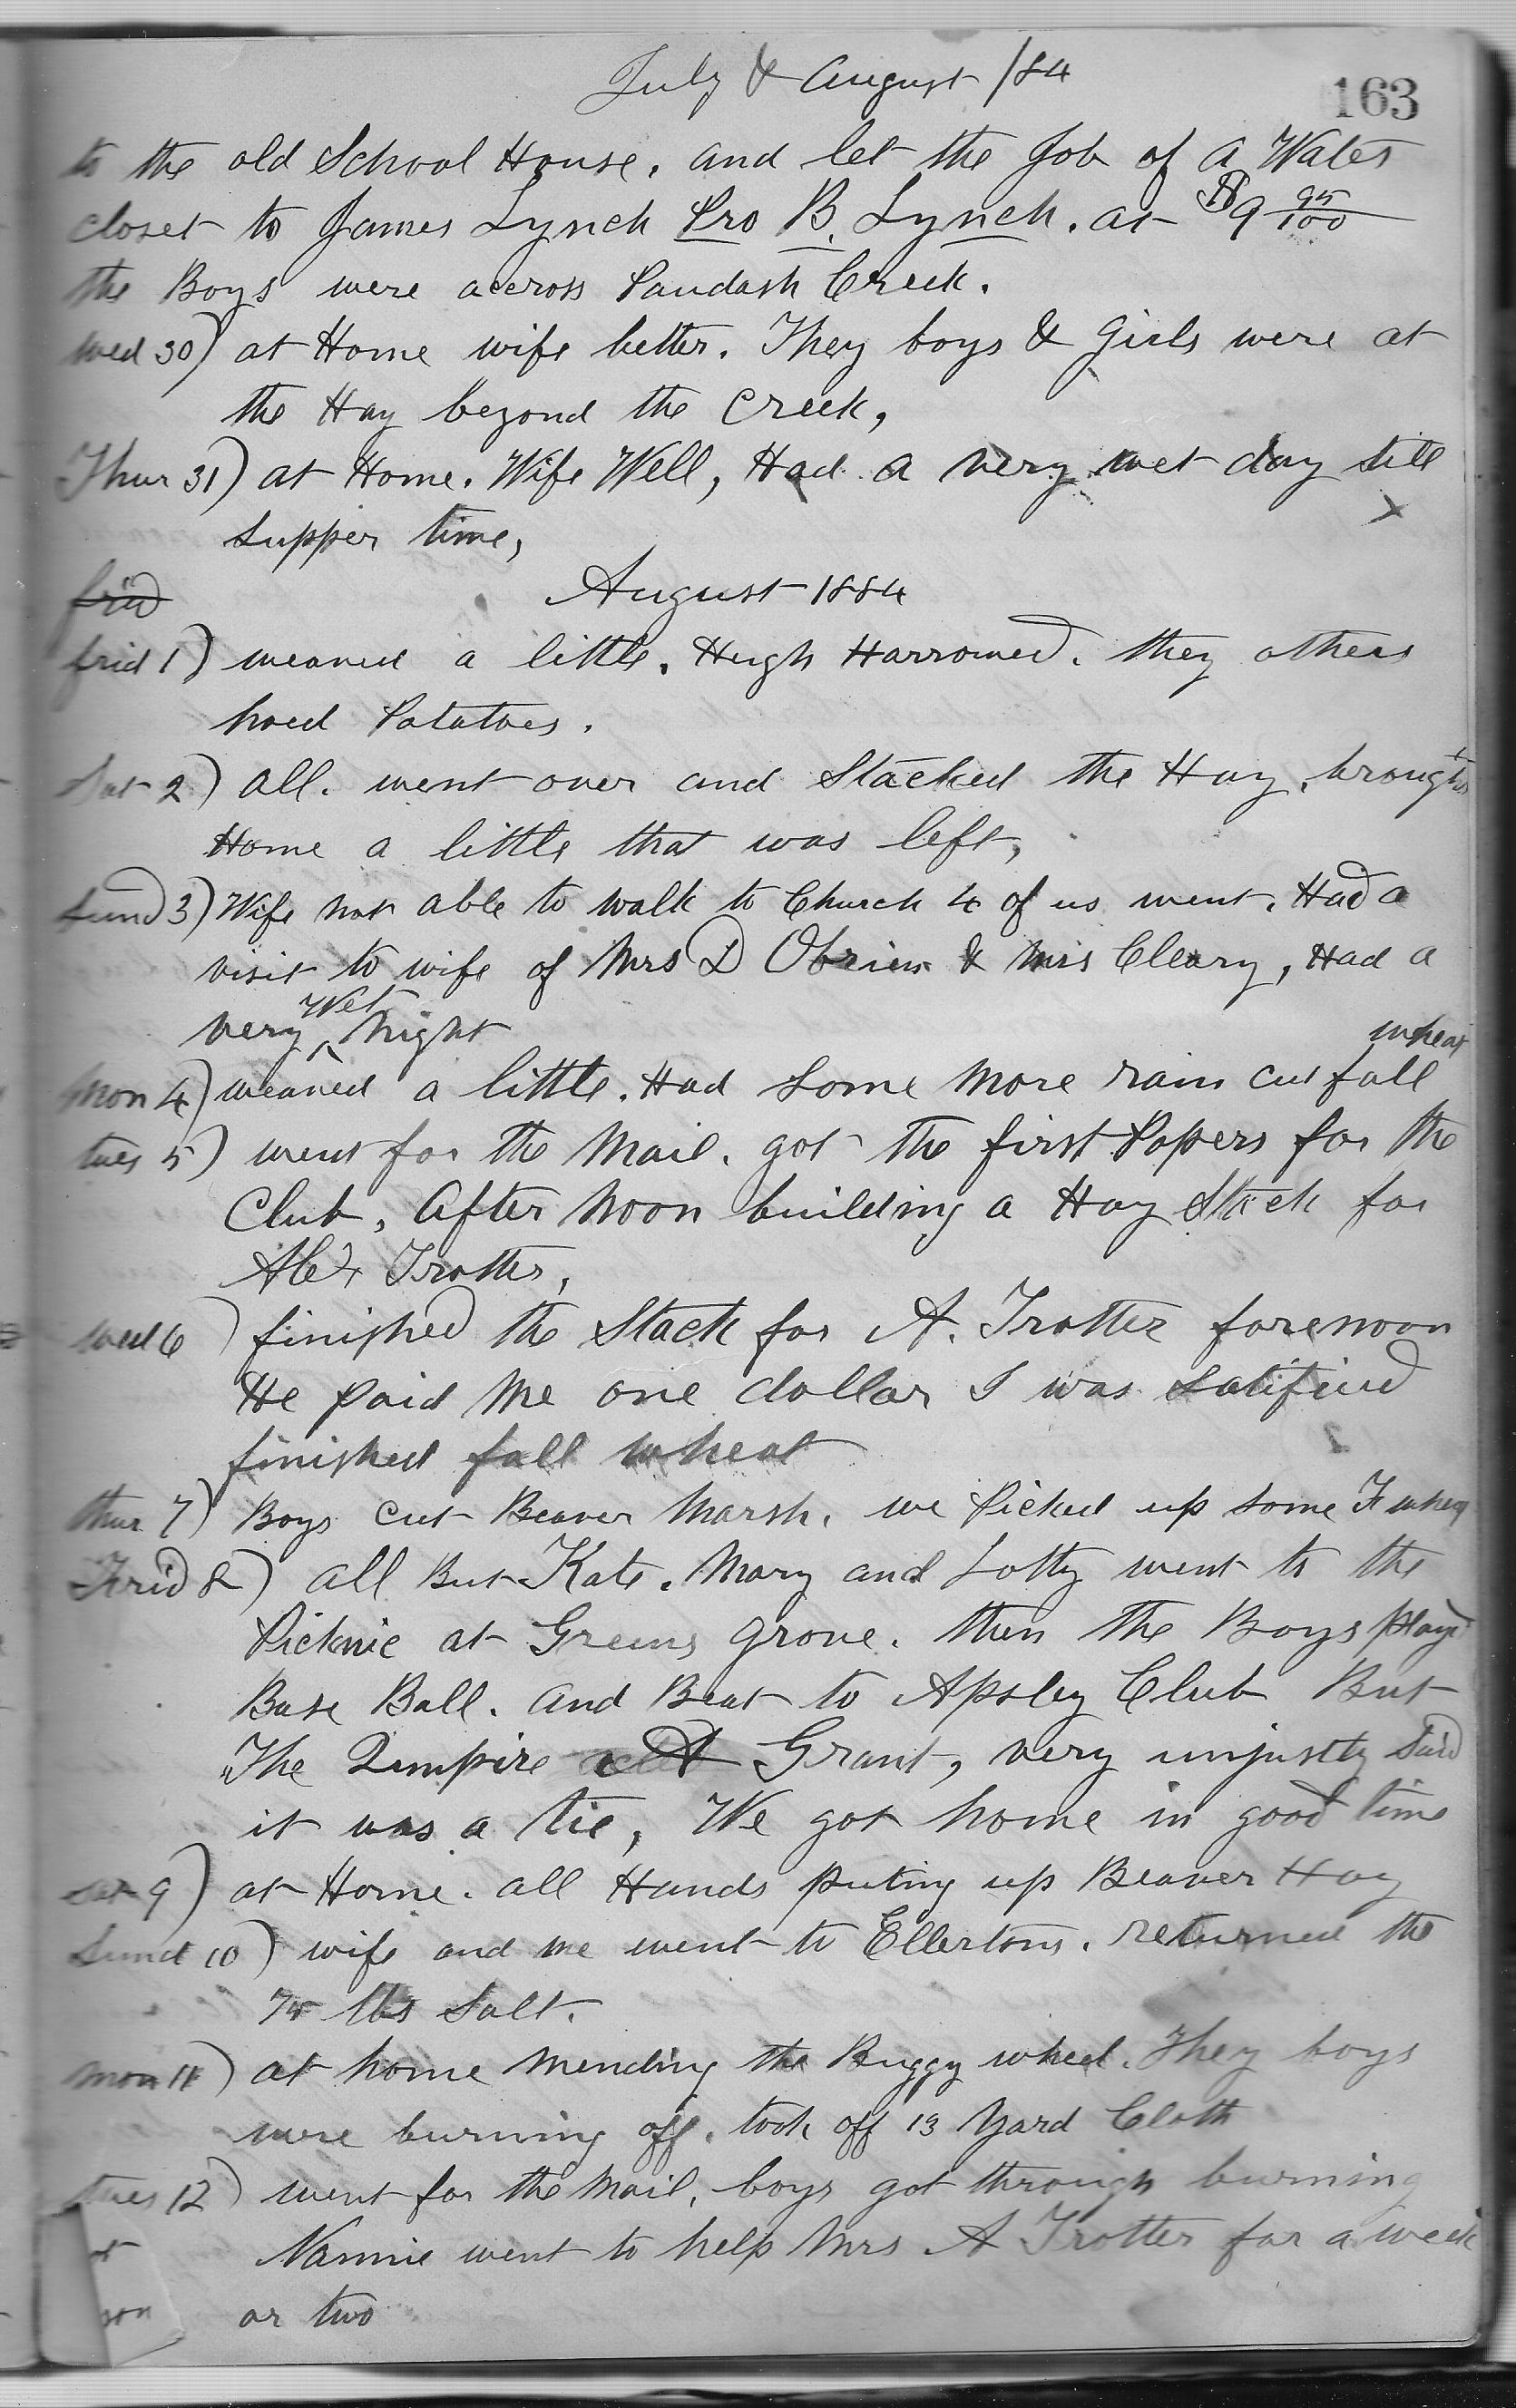 July & August /84
163
to the old School House. and let the Job of a Water
closet to James Lynch Pro B. Lynch. at $9 95/100
the Boys were accross Paudash Creek.
Wed 30) at Home wife better. They boys & Girls were at
the Hay beyond the Creek,
Thur 31) at Home. Wife Well, Had a very wet day till
supper time,
frid
August 1884
frid 1) weaved a little. Hugh Harrowed. they others
hoed Potatoes.
Sat 2) all. went over and Stacked the Hay. brought
Home a little that was left,
Sund 3) Wife not able to walk to Church 4 of us went. Had a
visit to wife of Mrs D Obrien & Mis Cleary, Had a
very Wet night
wheat
Mon 4) weaved a little. Had some more rain cut fall
tues 5) went for the Mail. got the first Papers for the
Club, After Noon building a Hay Stack for
Alex Trotter,
Wed 6) finished the Stack for A. Trotter forenoon
He paid me one dollar I was satified
finished fall wheat
thur 7) Boys cut Beaver Marsh. we Picked up some F wheat
Frid 8) all But Kate. Mary and Lotty went to the
Picknic at Greens grove. then the Boys playd
Base Ball. and Beat to Apsley Club But
The Umpire Grant, very unjustly Said
it was a tie, We got home in good time
Sat 9) at Home. all Hands puting up Beaver Hay
Sund 10) wife and me went to Ellertons. returned the
75 lbs Salt.
Mon 11) at home mending the Buggy wheel. They boys
were burning off. took off 13 Yard Cloth
tues 12) went for the Mail. boys got through burning
Nannie went to help Mrs A Trotter for a week
or two